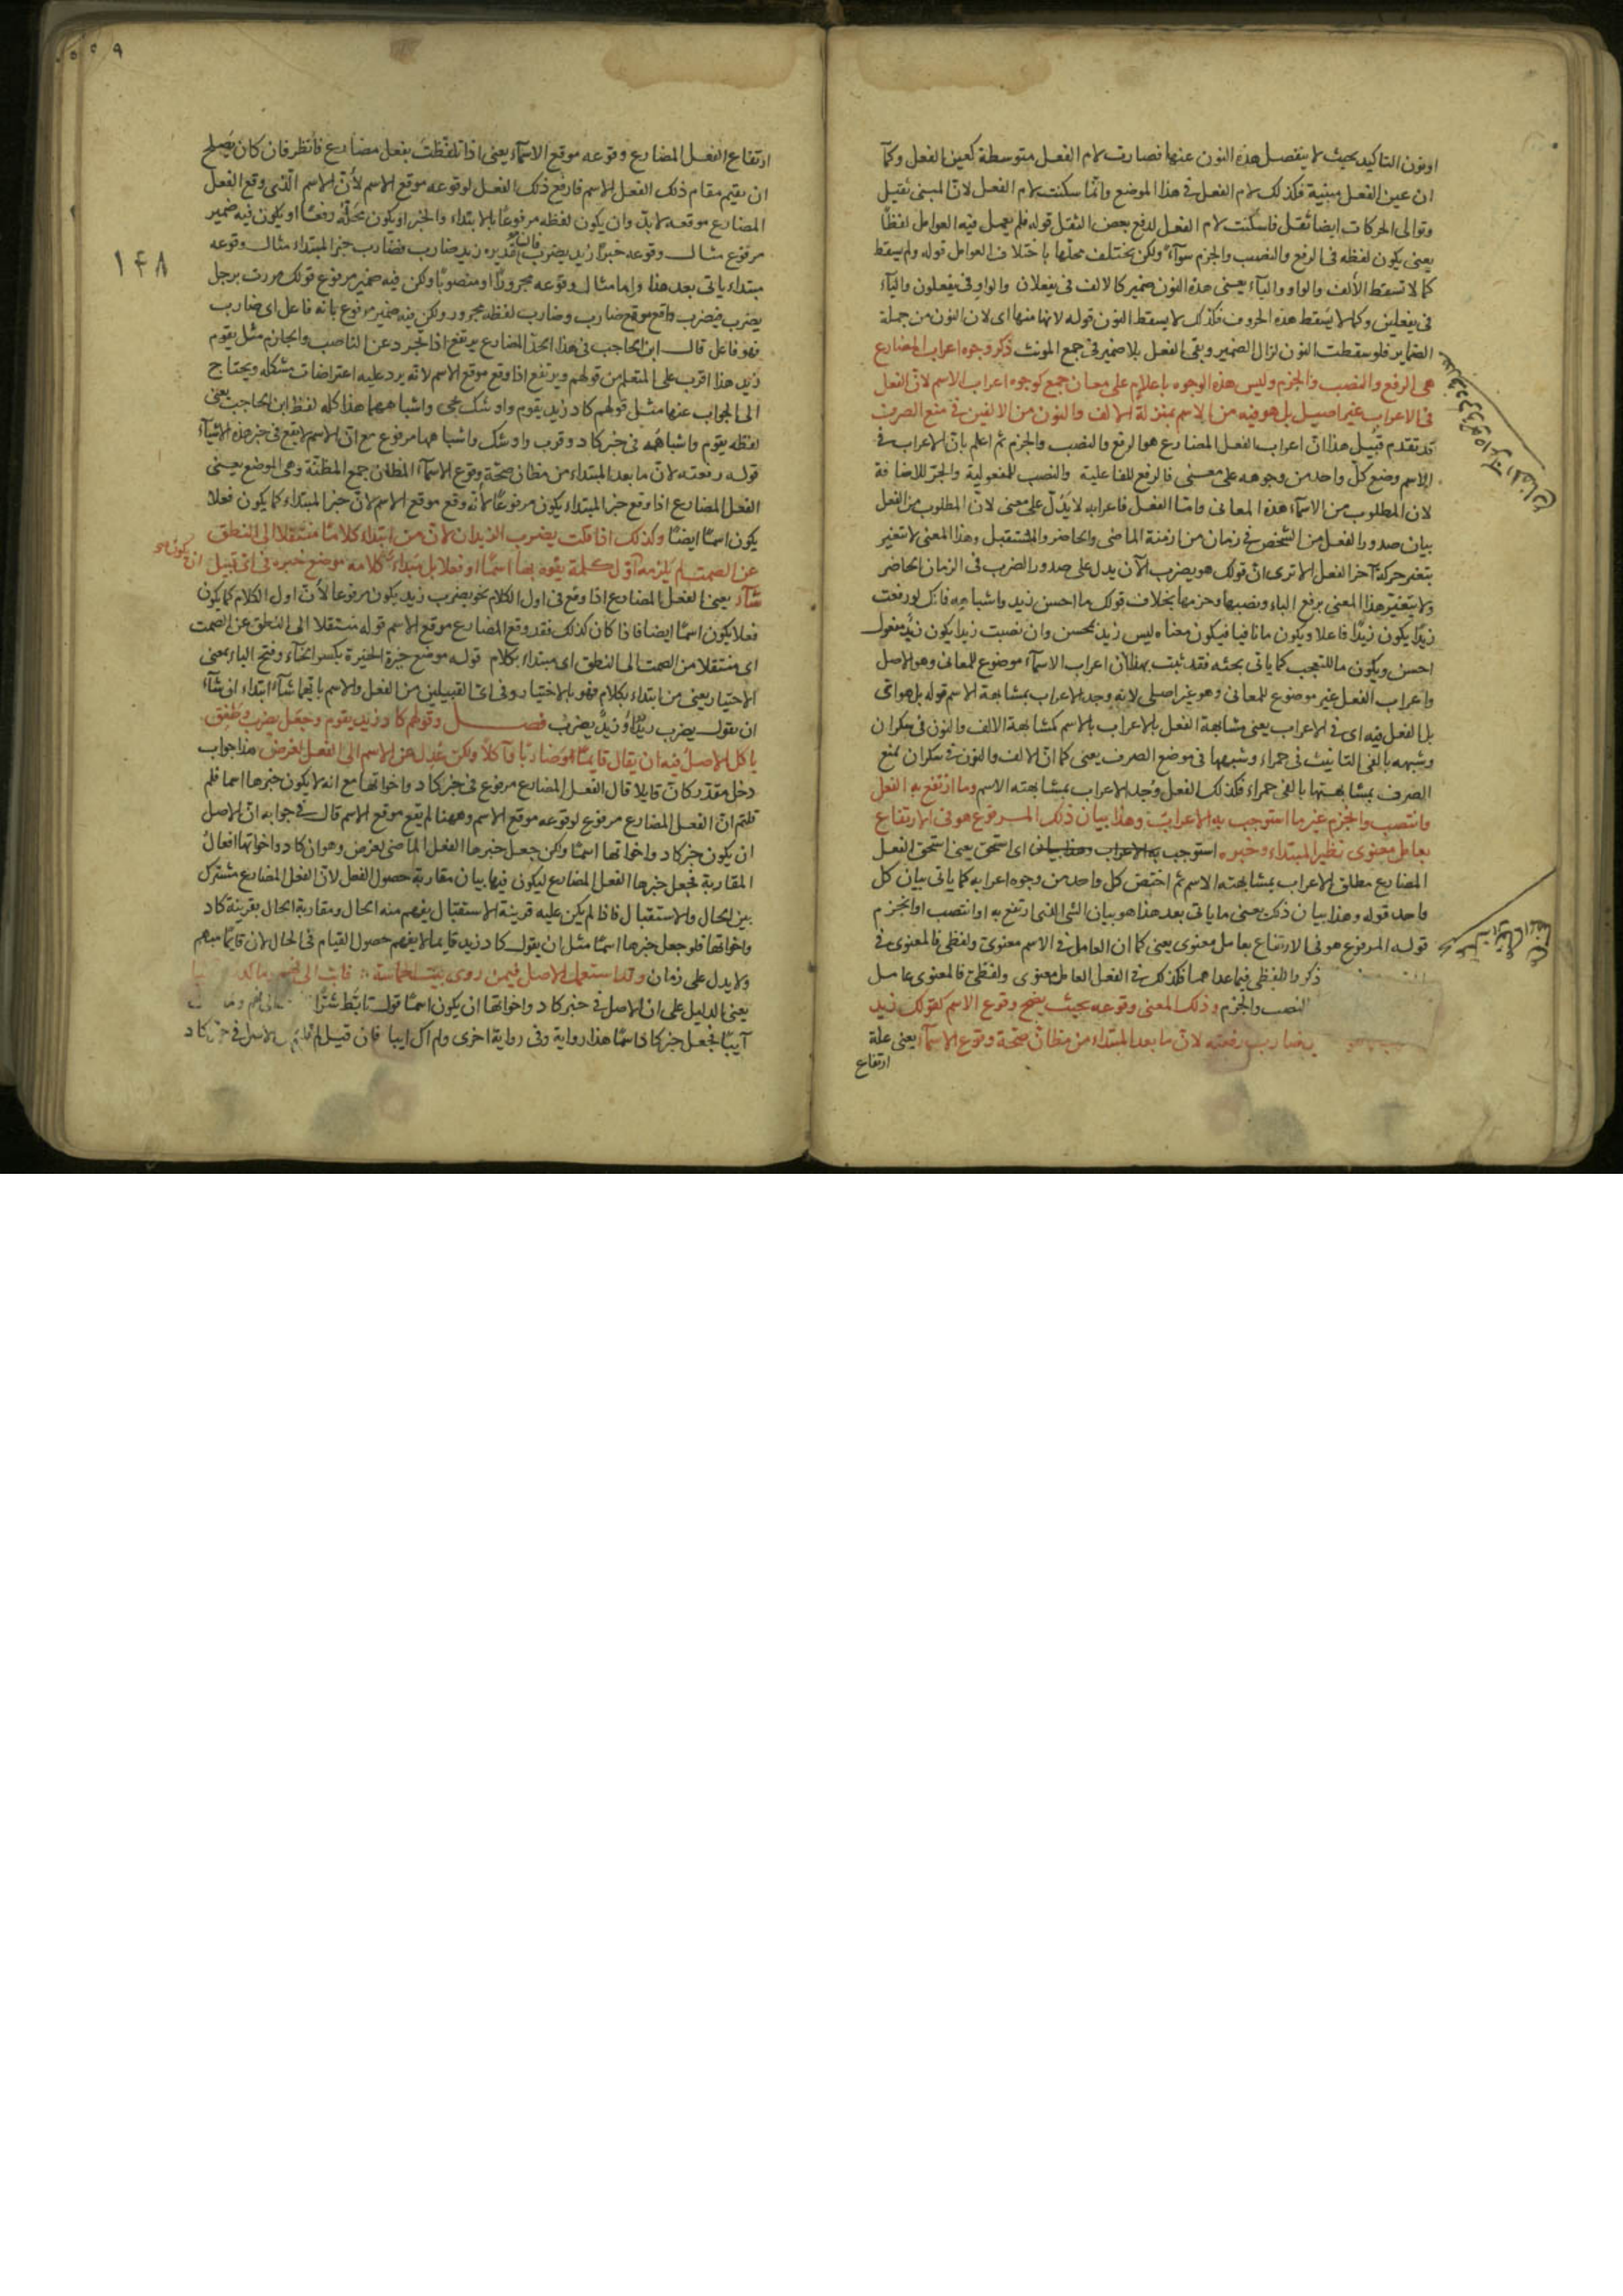 او نون التاكيد بحيث لا ينفصل هذه النون عنها فصارت لام الفعل متوسطة كعين الفعل وكما
ان عين الفعل مبنية فكذلك لام الفعل في هذا الموضع وانما سكنت لام الفعل لان المبنى ثقيل
وتوالى الحركات ايضا ثقل فاسكنت لام الفعل لدفع بعض الثقل قوله فلم يعمل فيه العوامل لفظا
يعنى يكون لفظه في الرفع والنصب والجزم سواء ولكن يختلف محلها باختلاف العوامل قوله ولم يسقط
كما لا تسقط الألف والواو والياء يعنى هذه النون ضمير كالالف في يفعلان والواو في يفعلون والياء
في يفعلين وكما لا يسقط هذه الحروف فكذلك لا يسقط النون قوله لانها منها اى لان النون من جملة
الضماير فلو سقطت النون لزال الضمير وبقى الفعل بلا ضمير في جمع المونث ذكر وجوه اعراب المضارع
هى الرفع والنصب والجزم وليس هذه الوجوه باعلام على معان جمع كوجوه اعراب الاسم لان الفعل
في الاعراب غير اصيل بل هو فيه من الاسم بمنزلة الالف والنون من الالفين في منع الصرف
قد تقدم قبيل هذا ان اعراب الفعل المضارع هو الرفع والنصب والجزم ثم اعلم بان الاعراب في
الاسم وضع كل واحد من وجوهه على معنى فالرفع للفاعلية والنصب للمفعولية والجر للاضافة
لان المطلوب من الاسماء هذه المعانى واما الفعل فاعرابه لا يدل على معنى لان المطلوب من الفعل
بيان صدور الفعل من الشخص في زمان من ازمنة الماضى والحاضر والمستقبل وهذا المعنى لا تتغير
بتغير حركة آخر الفعل الا ترى ان قولك هو يضرب الآن يدل على صدور الضرب في الزمان الحاضر
ولا يتغير هذا المعنى برفع الباء ونصبها وجزمها بخلاف قولك ما احسن زيد واشباهه فانك لو رفعت
زيدا يكون زيدا فاعلا ويكون ما نافيا فيكون معناه ليس زيد بمحسن وان نصبت زيدا يكون زيد مفعول
احسن ويكون ما للتعجب كما ياتى بحثه فقد ثبت بهذا ان اعراب الاسماء موضوع للمعانى وهو الاصل
واعراب الفعل غير موضوع للمعانى وهو غير اصلى لانه وجد الاعراب بمشابهة الاسم قوله بل هو اتى
بل الفعل فيه اى في الاعراب يعنى مشابهة الفعل بالاعراب بالاسم كمشابهة الالف والنون في سكران
وشبهه بالفى التانيث في حمراء وشبهها في موضع الصرف يعنى كما ان الالف والنون في سكران يمنع
الصرف بمشابهتها بالفى حمراء فكذلك الفعل وجد الاعراب بمشابهته الاسم وما ارتفع به الفعل
وانتصب وانجزم غير ما استوجب به الاعراب وهذا بيان ذلك المرفوع هو في الارتفاع
بعامل معنوى نظير المبتداء وخبره استوجب به الاعراب وهذا بيان اى استحق يعنى استحق الفعل
المضارع مطلق الاعراب بمشابهته الاسم ثم اختص كل واحد من وجوه اعرابه كما ياتى بيان كل
واحد قوله وهذا بيان ذلك يعنى ما ياتى بعد هذا هو بيان الشئ الذى ارتفع به او انتصب او انجزم
قوله المرفوع هو في الارتفاع بعامل معنوى يعنى كما ان العامل في الاسم معنوى ولفظى فالمعنوى في
ذكر واللفظى فيما عداهما فكذلك في الفعل العامل معنوى ولفظى فالمعنوى عامل
النصب والجزم وذلك المعنى وقوعه بحيث يصح وقوع الاسم كقولك زيد
يضارب رفعته لان ما بعد المبتداء من مظان صحة وقوع الاسماء يعنى علة
ارتفاع
١٤٨
ارتفاع الفعل المضارع وقوعه موقع الاسماء يعنى اذا تلفظت بفعل مضارع فانظر فان كان يصلح
ان يقيم مقام ذلك الفعل الاسم فارفع ذلك الفعل لوقوعه موقع الاسم لان الاسم الذى وقع الفعل
المضارع موقعه لا بد وان يكون لفظه مرفوعا بالابتداء والخبر او يكون محله رفعا او يكون فيه ضمير
مرفوع مثال وقوعه خبرا زيد يضرب تقديره زيد ضارب فضارب خبر المبتداء مثال وقوعه
مبتداء ياتى بعد هذا واما مثال وقوعه مجرورا او منصوبا ولكن فيه ضمير مرفوع قولك مررت برجل
يضرب فيضرب واقع موقع ضارب وضارب لفظه مجرور ولكن فيه ضمير مرفوع بانه فاعل اى ضارب
فهو فاعل قال ابن الحاجب في هذا الحد المضارع يرتفع اذا تجرد عن الناصب والجازم مثل يقوم
زيد هذا اقرب على المتعلم من قولهم ويرتفع اذا وقع موقع الاسم لانه يرد عليه اعتراضات مشكله ويحتاج
الى الجواب عنها مثل قولهم كاد زيد يقوم واوشك يجى واشباههما هذا كله لفظ ابن الحاجب يعنى
لفظه يقوم واشباهه في خبر كاد وقرب واوشك واشباهها مرفوع مع ان الاسم لا يقع في خبر هذه الاشياء
قوله رفعته لان ما بعد المبتداء من مظان صحة وقوع الاسماء المظان جمع المظنة وهى الموضع يعنى
الفعل المضارع اذا وقع خبر المبتداء يكون مرفوعا لانه وقع موقع الاسم لان خبر المبتداء كما يكون فعلا
يكون اسما ايضا وكذلك اذا قلت يضرب الزيدان لان من ابتداء كلاما منتقلا الى النطق
عن الصمت لم يلزمه اول كلمة يفوه بها اسما او فعلا بل مبتداء كلامه موضع خبره في اى قبيل
شاء يعنى الفعل المضارع اذا وقع في اول الكلام نحو يضرب زيد يكون مرفوعا لان اول الكلام كما يكون
فعلا يكون اسما ايضا فاذا كان كذلك فقد وقع المضارع موقع الاسم قوله منتقلا الى النطق عن الصمت
اى منتقلا من الصمت الى النطق اى مبتداء بكلام قوله موضع خيرة الخيرة بكسر الخاء وفتح الياء بمعنى
الاختيار يعنى من ابتداء بكلام فهو بالاختيار في اى القبيلين من الفعل والاسم بايهما شاء ابتداء ان شاء
ان يقول يضرب زيد او زيد يضرب فصل وقولهم كاد زيد يقوم وجعل يضرب وطفق
ياكل الاصل فيه ان يقال قايما وضاربا وآكلا ولكن عدل عن الاسم الى الفعل لغرض هذا جواب
دخل مقدر كان قايلا قال الفعل المضارع مرفوع في خبر كاد واخواتها مع انه لا يكون خبرها اسما فلم
قلتم ان الفعل المضارع مرفوع لوقوعه موقع الاسم وههنا لم يقع موقع الاسم قال في جوابه ان الاصل
ان يكون خبر كاد واخواتها اسما ولكن جعل خبرها الفعل الماضى لغرض وهو ان كاد واخواتها افعال
المقاربة فجعل خبرها الفعل المضارع ليكون فيها بيان مقاربة حصول الفعل لان الفعل المضارع مشترك
بين الحال والاستقبال فاذا لم يكن عليه قرينة الاستقبال يفهم منه الحال ومقاربة الحال بقرينة كاد
واخواتها فلو جعل خبرها اسما مثل ان يقول كاد زيد قايما لا يفهم حصول القيام في الحال لان قايما مبهم
ولا يدل على زمان وقد استعمل الاصل فيمن روى بيت الحماسة فابت الى فهم وما كدت
يعنى الدليل على ان الاصل في خبر كاد واخواتها ان يكون اسما قول تابط شرا
آيبا فجعل خبر كاد اسما هذا رواية وفى رواية اخرى ولم اك آيبا فان قيل لم الاصل في خبر كاد